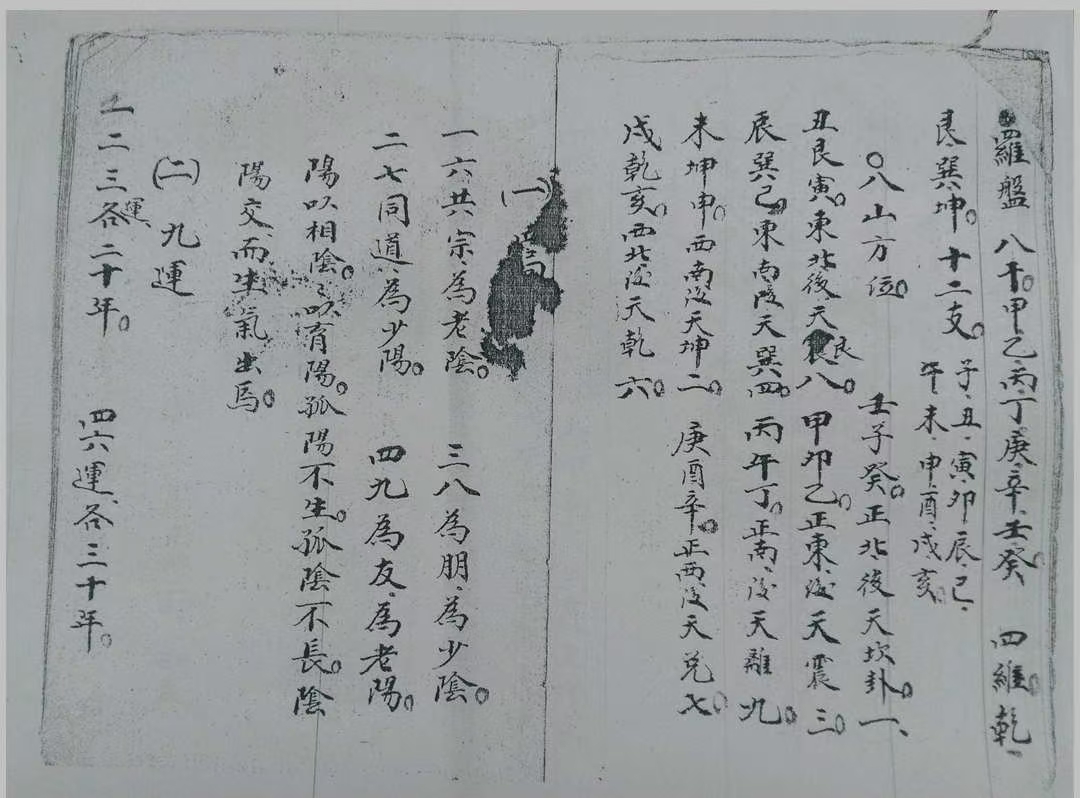 羅盤 八干。甲乙、丙、丁、庚、辛、壬、癸。 四維。乾、
艮、巽、坤。十二支。子、丑、寅、卯、辰、巳、
午、未、申、酉、戌、亥。
○八山方位。 壬子癸。正北、後天坎卦。一、
丑艮寅。東北後天艮八。甲卯乙。正東、後天震三。
辰巽巳。東南後天巽四。丙午丁。正南、後天離九。
未坤申。西南後天坤二。庚酉辛。正西、後天兌七。
戌乾亥。西北後天乾六。
(一)
一六共宗、為老陰。 三八為朋、為少陰。
二七同道、為少陽。 四九為友、為老陽。
陽以相陰。陰以育陽。孤陽不生。孤陰不長。陰
陽交、而生氣出焉。
(二)九運
一二三運、各二十年。 四六運、各三十年。